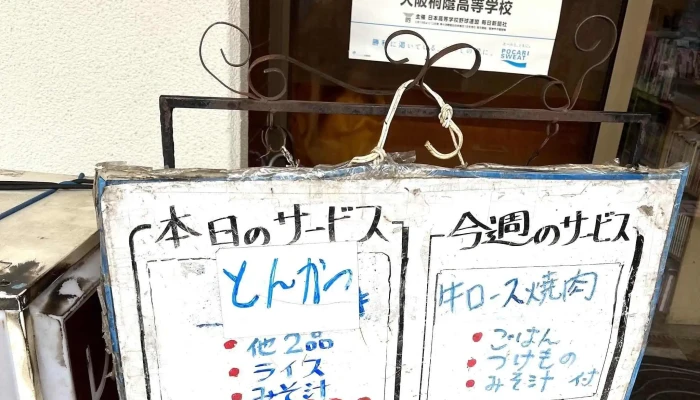 大阪桐蔭高等学校
主催 日本高等学校野球連盟 毎日新聞社
POCARI SWEAT
本日のサービス
とんかつ
• 他2品
• ライス
• みそ汁
今週のサービス
牛ロース焼肉
• ごはん
• づけもの
• みそ汁 付